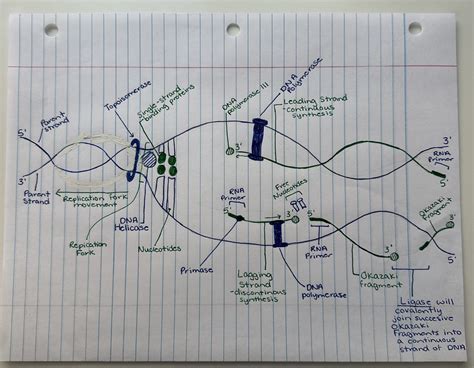 Topoisomerase
Single-strand
binding proteins
DNA
polymerase III
DNA
Polymerase
Leading Strand
-continuous
synthesis
5'
Parent
strand
3'
Parent
Strand
Replication fork
movement
Repication
Fork
DNA
Helicase
Nucleotides
3'
3'
RNA
Primer
5'
5'
RNA
Primer
5'
Free
Nucleotides
3'
5'
Primase
Lagging
Strand
-discontinous
synthesis
DNA
polymerase
RNA
Primer
Okazaki
fragment
3'
3'
Okazaki
fragment
5'
Ligase will
covalantly
join succesive
Okazaki
Fragments into
a continuous
strand of DNA